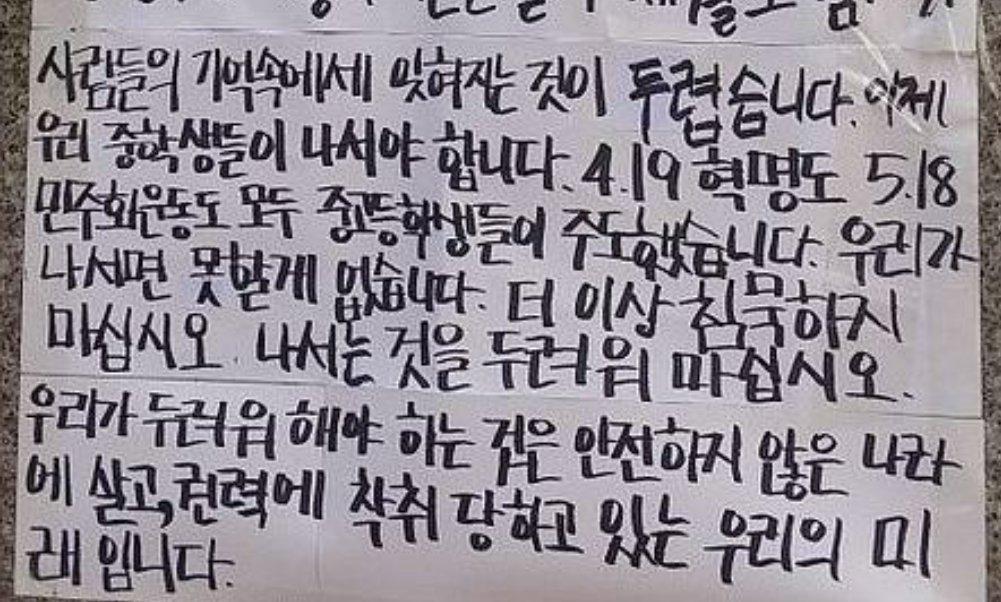 사람들의 기억속에세 잊혀지는 것이 두렵습니다. 이제
우리 중학생들이 나서야 합니다. 4.19 혁명도 5.18
민주화운동도 모두 중고등학생들이 주도했습니다. 우리가
나서면 못할게 없습니다. 더 이상 침묵하지
마십시오. 나서는 것을 두려워 마십시오.
우리가 두려워 해야 하는 것은 안전하지 않은 나라
에 살고, 권력에 착취 당하고 있는 우리의 미
래 입니다.